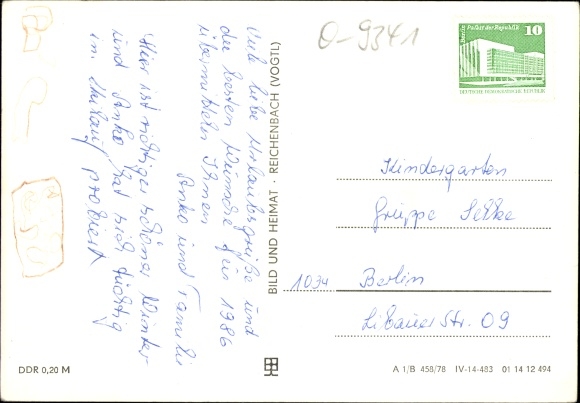 Viele liebe Urlaubsgrüße und
die besten Wünsche für 1986
übermitteln Ihnen
Anko und Familie
Hier ist richtiger schöner Winter
und Anko hat sich tüchtig
im Skilauf probiert
BILD UND HEIMAT · REICHENBACH (VOGTL)
O-9341
Berlin Palast der Republik
10
DEUTSCHE DEMOKRATISCHE REPUBLIK
Kindergarten
Gruppe Selke
1034 Berlin
Libauer Str. 09
DDR 0,20 M
A 1/B 458/78 IV-14-483 01 14 12 494